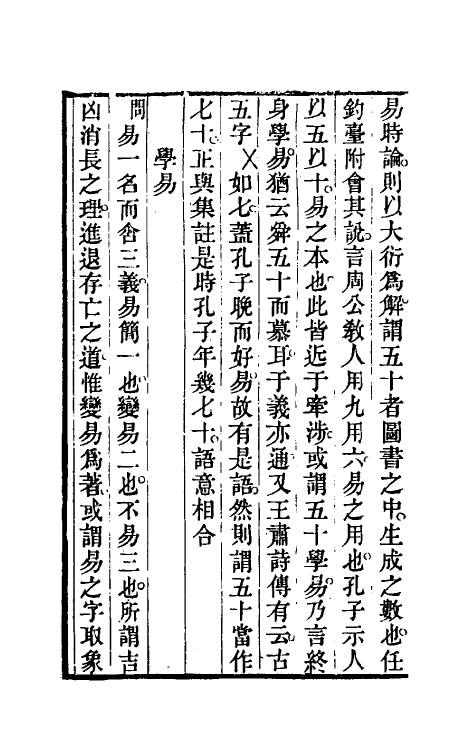 易時論則以大衍爲解謂五十者圖書之中生成之數也任
釣臺附會其說言周公教人用九用六易之用也孔子示人
以五以十易之本也此皆近于牽涉或謂五十學易乃言終
身學易猶云舜五十而慕耳于義亦通又王肅詩傳有云古
五字乂如七蓋孔子晚而好易故有是語然則謂五十當作
七十正與集註是時孔子年幾七十語意相合
學易
問易一名而含三義易簡一也變易二也不易三也所謂吉
凶消長之理進退存亡之道惟變易爲著或謂易之字取象